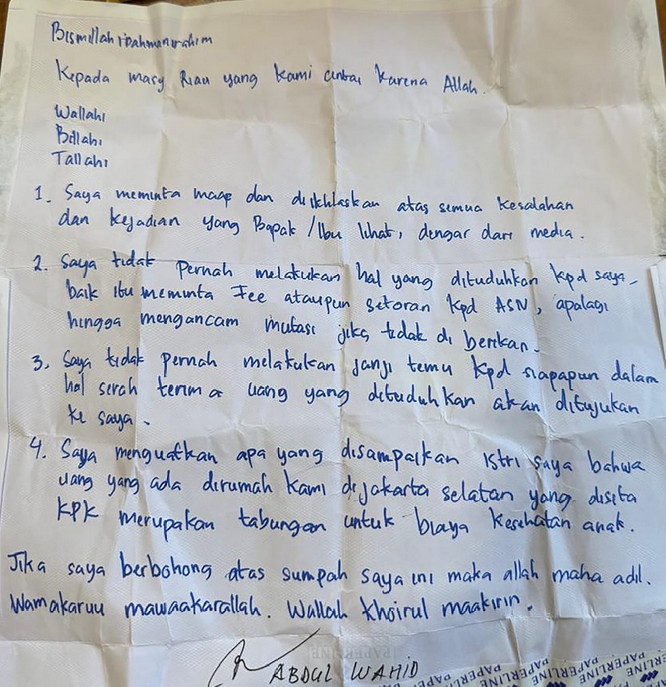 Bismillahirrahmanirahim
Kepada masy Riau yang kami cintai karena Allah.
Wallahi
Billahi
Tallahi
1. Saya meminta maap dan diikhlaskan atas semua kesalahan
dan kejadian yang Bapak/Ibu lihat, dengar dari media.
2. Saya tidak pernah melakukan hal yang dituduhkan kpd saya,
baik itu meminta Fee ataupun setoran kpd ASN, apalagi
hingga mengancam mutasi jika tidak di berikan.
3. Saya tidak pernah melakukan janji temu kpd siapapun dalam
hal serah terima uang yang dituduhkan akan ditujukan
ke saya.
4. Saya menguatkan apa yang disampaikan istri saya bahwa
uang yang ada dirumah kami dijakarta selatan yang disita
KPK merupakan tabungan untuk biaya kesehatan anak.
Jika saya berbohong atas sumpah saya ini maka allah maha adil.
Wamakaruu mawaakarallah. Wallah khoirul maakirin.
ABDUL WAHID
PAPERLINE
PAPERLINE PAPERLINE PAPERLINE PAPERLINE